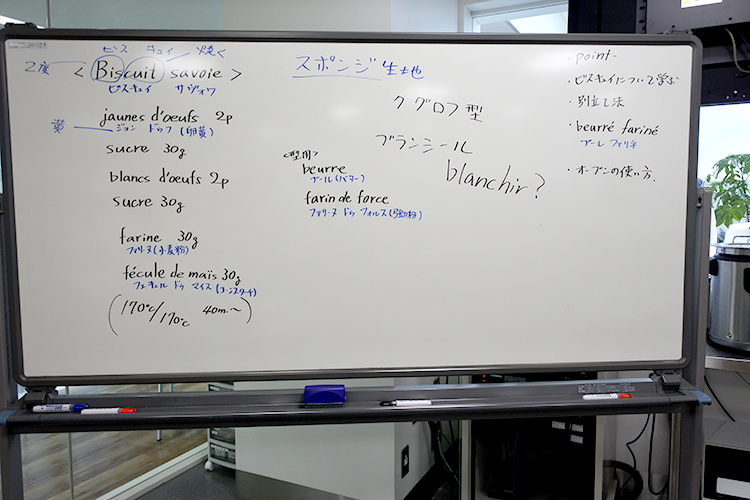 ビス キュイ 焼く
2度
< Biscuit savoie >
ビスキュイ サヴォワ
jaunes d'oeufs 2p
黄 ジョン ドゥフ (卵黄)
sucre 30g
blancs d'oeufs 2p
sucre 30g
farine 30g
ファリーヌ (小麦粉)
fécule de maïs 30g
フェキュル ドゥ マイス (コーンスターチ)
(170℃/170℃ 40m.〜)
スポンジ 生地
クグロフ型
ブランシール
blanchir?
<型用>
beurre
ブール (バター)
farin de force
ファリーヌ ドゥ フォルス (強力粉)
- point -
・ビスキュイについて学ぶ
・別立て法
・beurré fariné
ブーレ ファリネ
・オーブンの使い方.